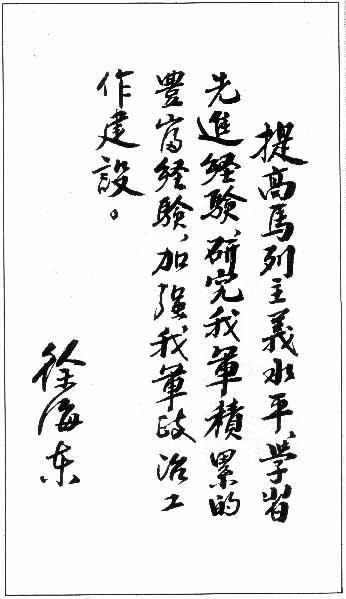 提高馬列主義水平、学習
先進経験、研究我軍積累的
豐富経験，加强我軍政治工
作建設。
徐海东